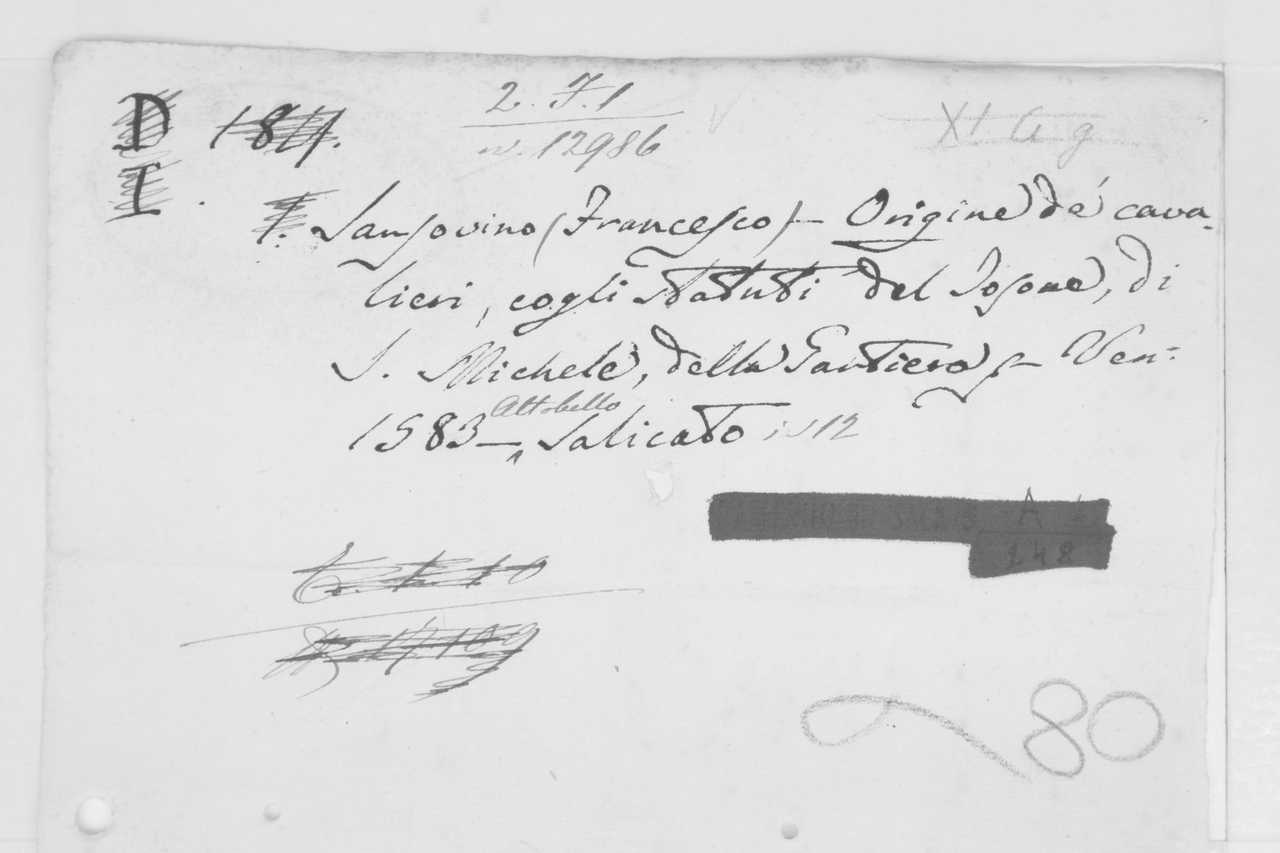 D 1811.
I.
2. F. 1
n. 12986
XI a g
1. Sansovino (Francesco) - Origine de' cava-
lieri, cogli statuti del Tosone, di
S. Michele, della Gartiera, - Ven:
1583 - Altobello Salicato in 12
A
248
80